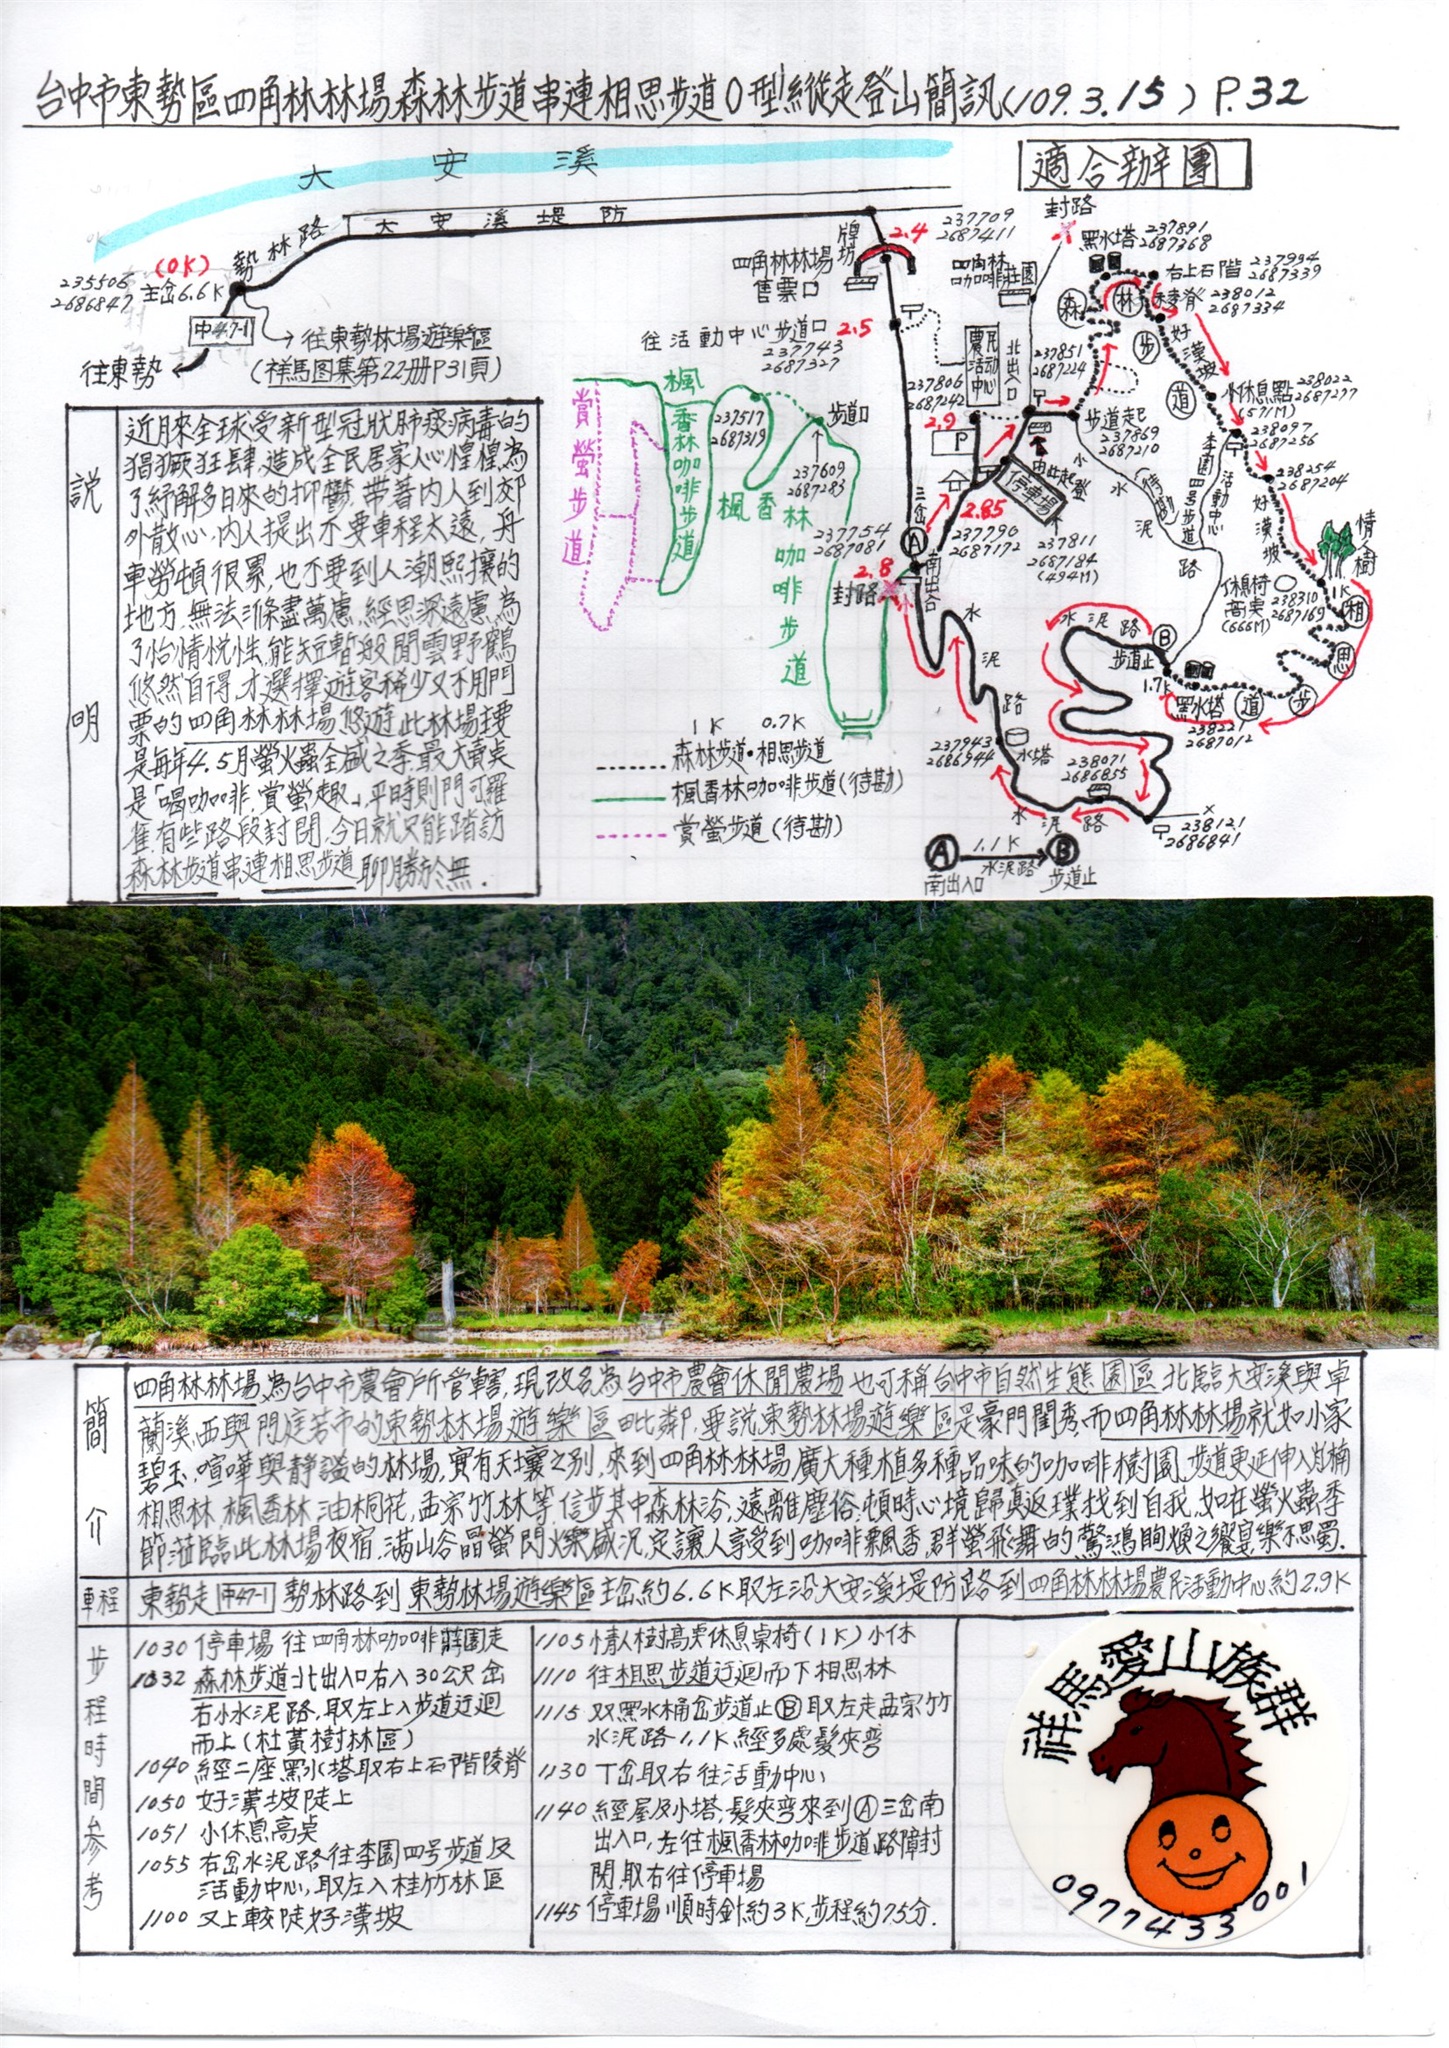 台中市東勢區四角林林場森林步道串連相思步道O型縱走登山簡訊(109.3.15) P.32
適合辦團
大安溪
大安溪堤防
勢林路
(0K)
主岔6.6K
235506
2686847
中47-1
往東勢
往東勢林場遊樂區
(祥馬图集第22册P31頁)
牌坊
2.4
237709
2687411
四角林林場
售票口
往活動中心步道口
2.5
237743
2687327
四角林
咖啡莊園
封路
黑水塔
237891
2687368
右上石階
237934
2687339
稜脊
238012
2687334
森林步道
好漢坡
小休息點
(571M)
238022
2687277
238097
2687256
238254
2687204
好漢坡
情人樹
1K
休息椅
高点
(666M)
238310
2687169
相思步道
農民活動中心
237806
2687242
2.9
P
北出入口
237851
2687224
步道起
237869
2687210
由此起登
停車場
2.85
237790
2687172
237811
2687184
(494M)
水泥路
(待勘)
李園四號步道
活動中心
三岔
A
南出口
237754
2687081
2.8
封路
水泥路
水泥路
B
步道止
1.7K
黑水塔
238221
2687012
237943
2686944
水塔
238071
2686855
水泥路
238121
2686841
賞螢步道
楓香林咖啡步道
237517
2687319
步道口
237609
2687283
楓香林咖啡步道
1K 0.7K
森林步道·相思步道
楓香林咖啡步道(待勘)
賞螢步道(待勘)
A 1.1K B
南出入口 水泥路 步道止
說明
近月來全球受新型冠狀肺炎病毒的
猖獗狂肆,造成全民居家人心惶惶,為
了紓解多日來的抑鬱,帶著内人到郊
外散心,内人提出不要車程太遠,舟
車勞頓很累,也不要到人潮熙攘的
地方,無法滌盡萬慮,經思深遠慮,為
了怡情悅性,能短暫般閒雲野鶴
悠然自得,才選擇遊客稀少又不用門
票的四角林林場悠遊,此林場主要
是每年4.5月螢火蟲全盛之季,最大賣点
是「喝咖啡.賞螢趣」,平時則門可羅
雀,有些路段封閉,今日就只能踏訪
森林步道串連相思步道,聊勝於無.
簡介
四角林林場,為台中市農會所管轄,現改名為台中市農會休閒農場,也可稱台中市自然生態園區,北臨大安溪與卓
蘭溪,西與門庭若市的東勢林場遊樂區毗鄰,要說東勢林場遊樂區是豪門閨秀,而四角林林場就如小家
碧玉,喧嘩與靜謐的林場,實有天壤之別,來到四角林林場廣大種植多種品味的咖啡樹園,步道更延伸入肖楠
相思林,楓香林,油桐花,孟宗竹林等,信步其中森林浴,遠離塵俗,頓時心境歸真返璞找到自我,如在螢火蟲季
節蒞臨此林場夜宿,滿山谷晶螢閃爍盛況,定讓人享受到咖啡飄香,群螢飛舞的驚鴻眴煥之饗宴,樂不思蜀.
車程
東勢走中47-1勢林路到東勢林場遊樂區主岔約6.6K取左沿大安溪堤防路到四角林林場農民活動中心約2.9K
步程時間參考
1030 停車場往四角林咖啡莊園走
1032 森林步道北出入口右入30公尺岔
右小水泥路,取左上入步道迂迴
而上(杜黃樹林區)
1040 經二座黑水塔取右上石階陵脊
1050 好漢坡陡上
1051 小休息高点
1055 右岔水泥路往李園四号步道及
活動中心,取左入桂竹林區
1100 又上較陡好漢坡
1105 情人樹高点休息桌椅(1K)小休
1110 往相思步道迂迴而下相思林
1115 双黑水桶岔步道止B取左走孟宗竹
水泥路1.1K經多處髮夾彎
1130 丁岔取右往活動中心
1140 經屋及小塔,髮夾彎來到A三岔南
出入口,左往楓香林咖啡步道路障封
閉,取右往停車場
1145 停車場順時針約3K,步程約75分.
祥馬愛山族群
0977433001